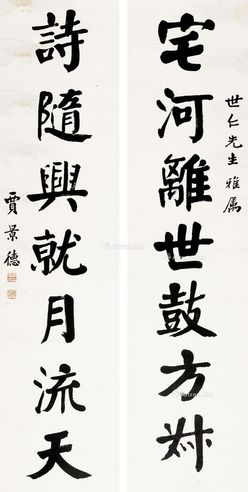 世仁先生雅属
宅河離世鼓方枻
詩隨興就月流天
賈景德